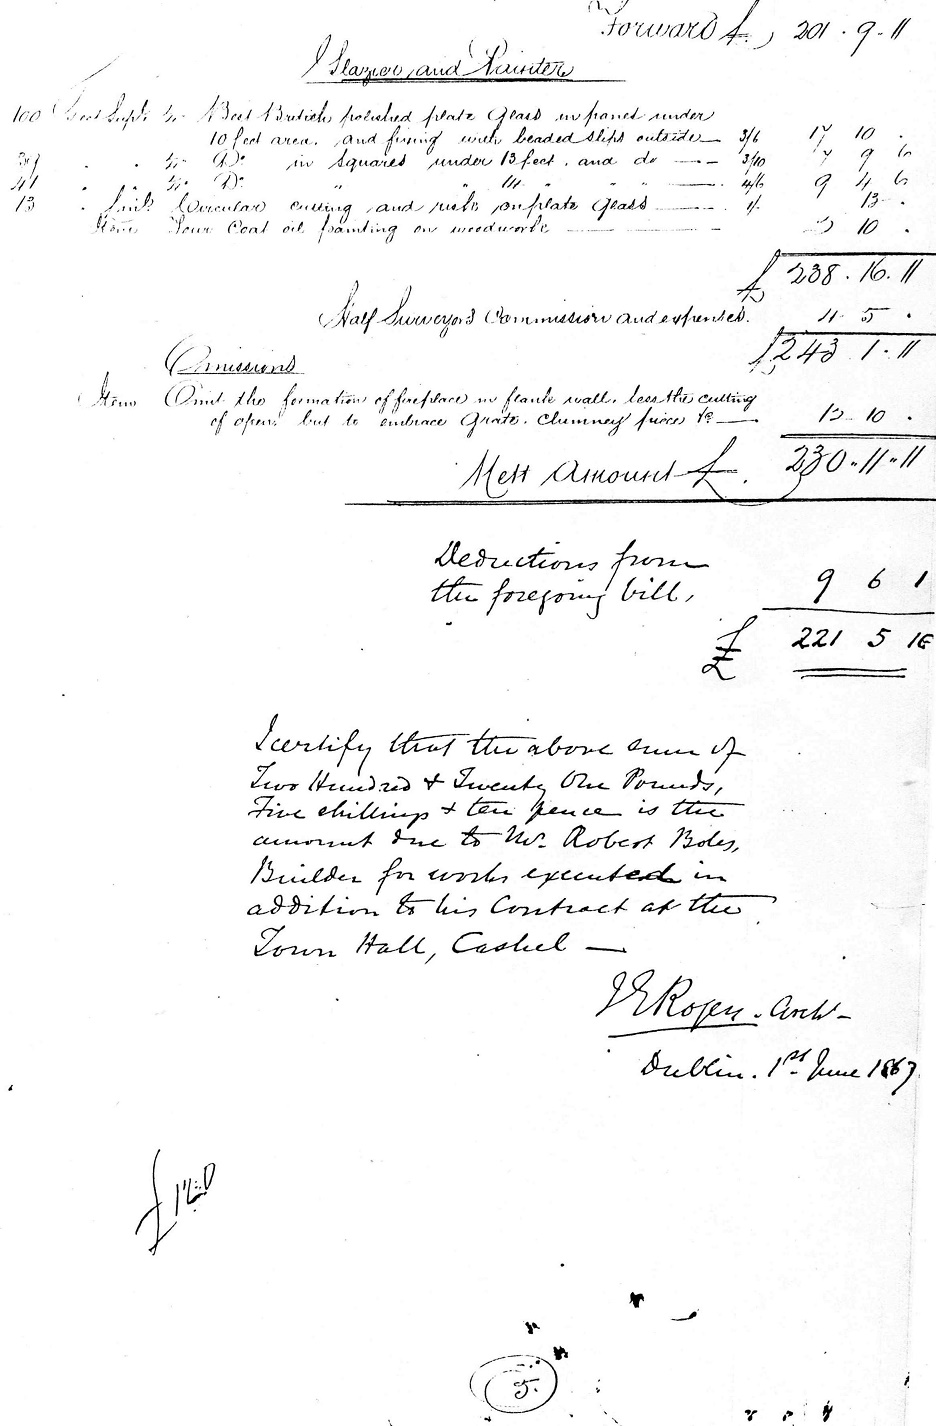 Forward £ 201 . 9 . 11
Glazier and Painter
100 Feet Supl: Best British polished plate Glass in panes under
10 feet area, and fixing with beaded slips outside — 3/6 17 10 .
39 " " Do in squares under 13 feet, and do — 3/10 7 9 6
41 " " Do " " 14 " " " — 4/6 9 4 6
13 " Linl Circular cutting and risk on plate Glass — 1/. 13 .
Item Four Coat oil painting on woodwork — 2 10 .
£ 238 . 16 . 11
Half Surveyors Commission and expenses. 4 5 .
£ 243 1 . 11
Omissions
Item Omit the formation of fireplace in flank wall, less the cutting
of openg but to embrace Grate, Chimney piece &c — 12 10 .
Nett Amount £ . 230 . 11 . 11
Deductions from
the foregoing bill, 9 6 1
£ 221 5 10
I certify that the above sum of
Two Hundred & Twenty One Pounds,
Five shillings & ten pence is the
amount due to Mr. Robert Boles,
Builder for works executed in
addition to his Contract at the
Town Hall, Cashel —
J E Rogers . Archt —
Dublin. 1st June 1867
5.